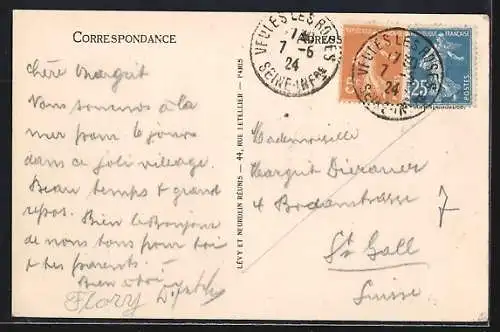 CORRESPONDANCE
ADRESSE
VEULES LES ROSES
7 -6
24
SEINE-INFRE
VEULES LES ROSES
7
24
SEINE-IN
5c
25c
POSTES
Chère Margrit
Nous sommes à la
mer pour 6 jours
dans ce joli village.
Beau temps & grand
repos. Bien le bonjour
de nous tous pour toi
& tes parents.
Bien à toi
Flory
LÉVY ET NEURDEIN RÉUNIS - 44, RUE LETELLIER - PARIS
Mademoiselle
Margrit Dierauer
4 Bodanstrasse
St Gall
Suisse
7